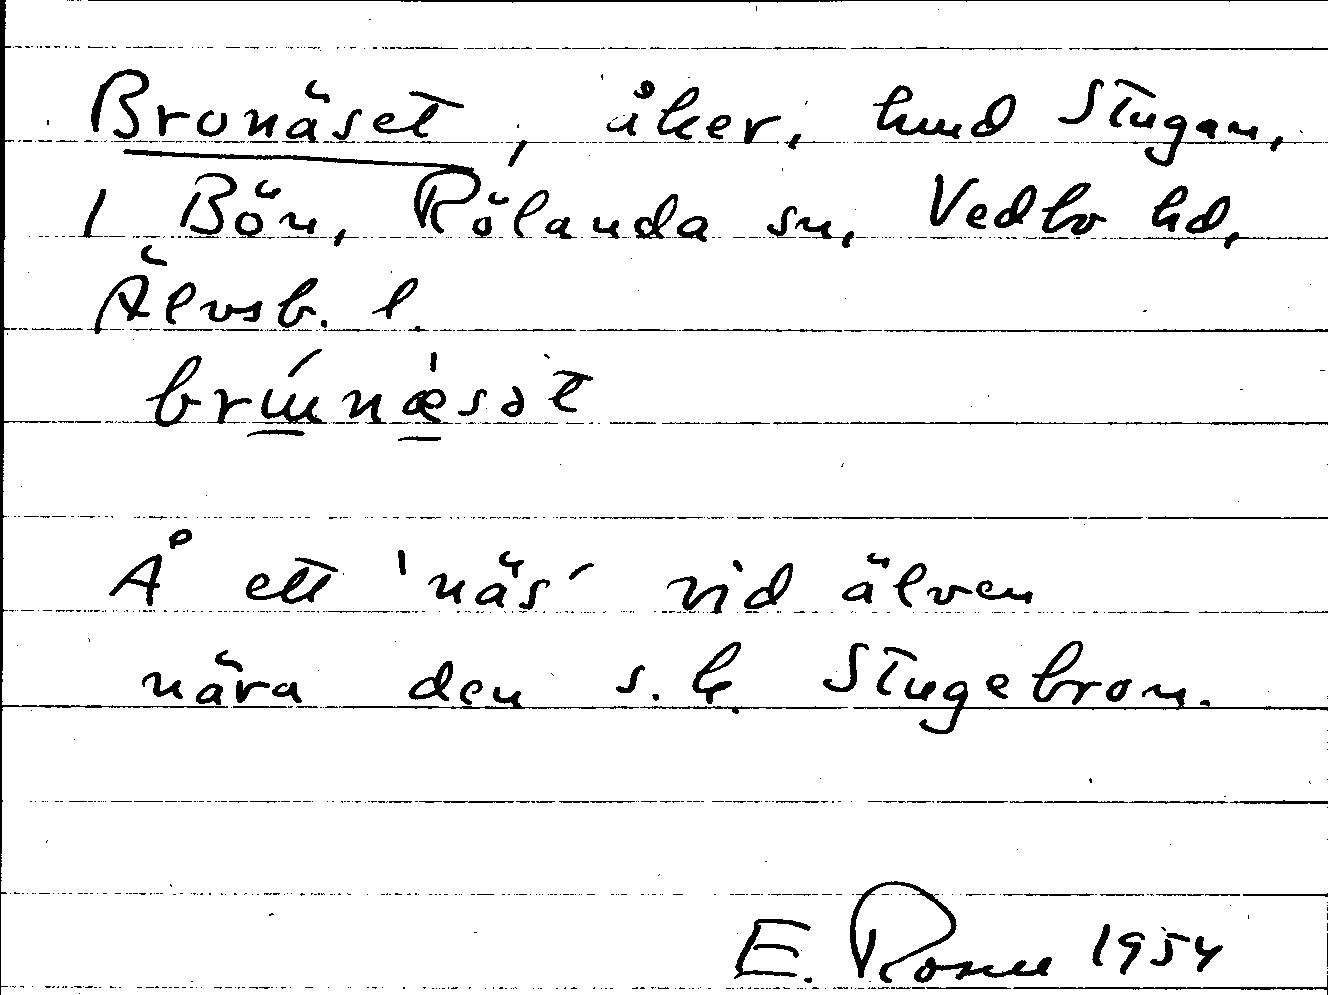 Bronäset, åker, lund Stugan,
1 Bön, Rölanda sn, Vedbo hd,
Älvsb. l.
brúnæ̀sət
Å ett 'näs' vid älven
nära den s.k. Stugebron.
E. Rosell 1954